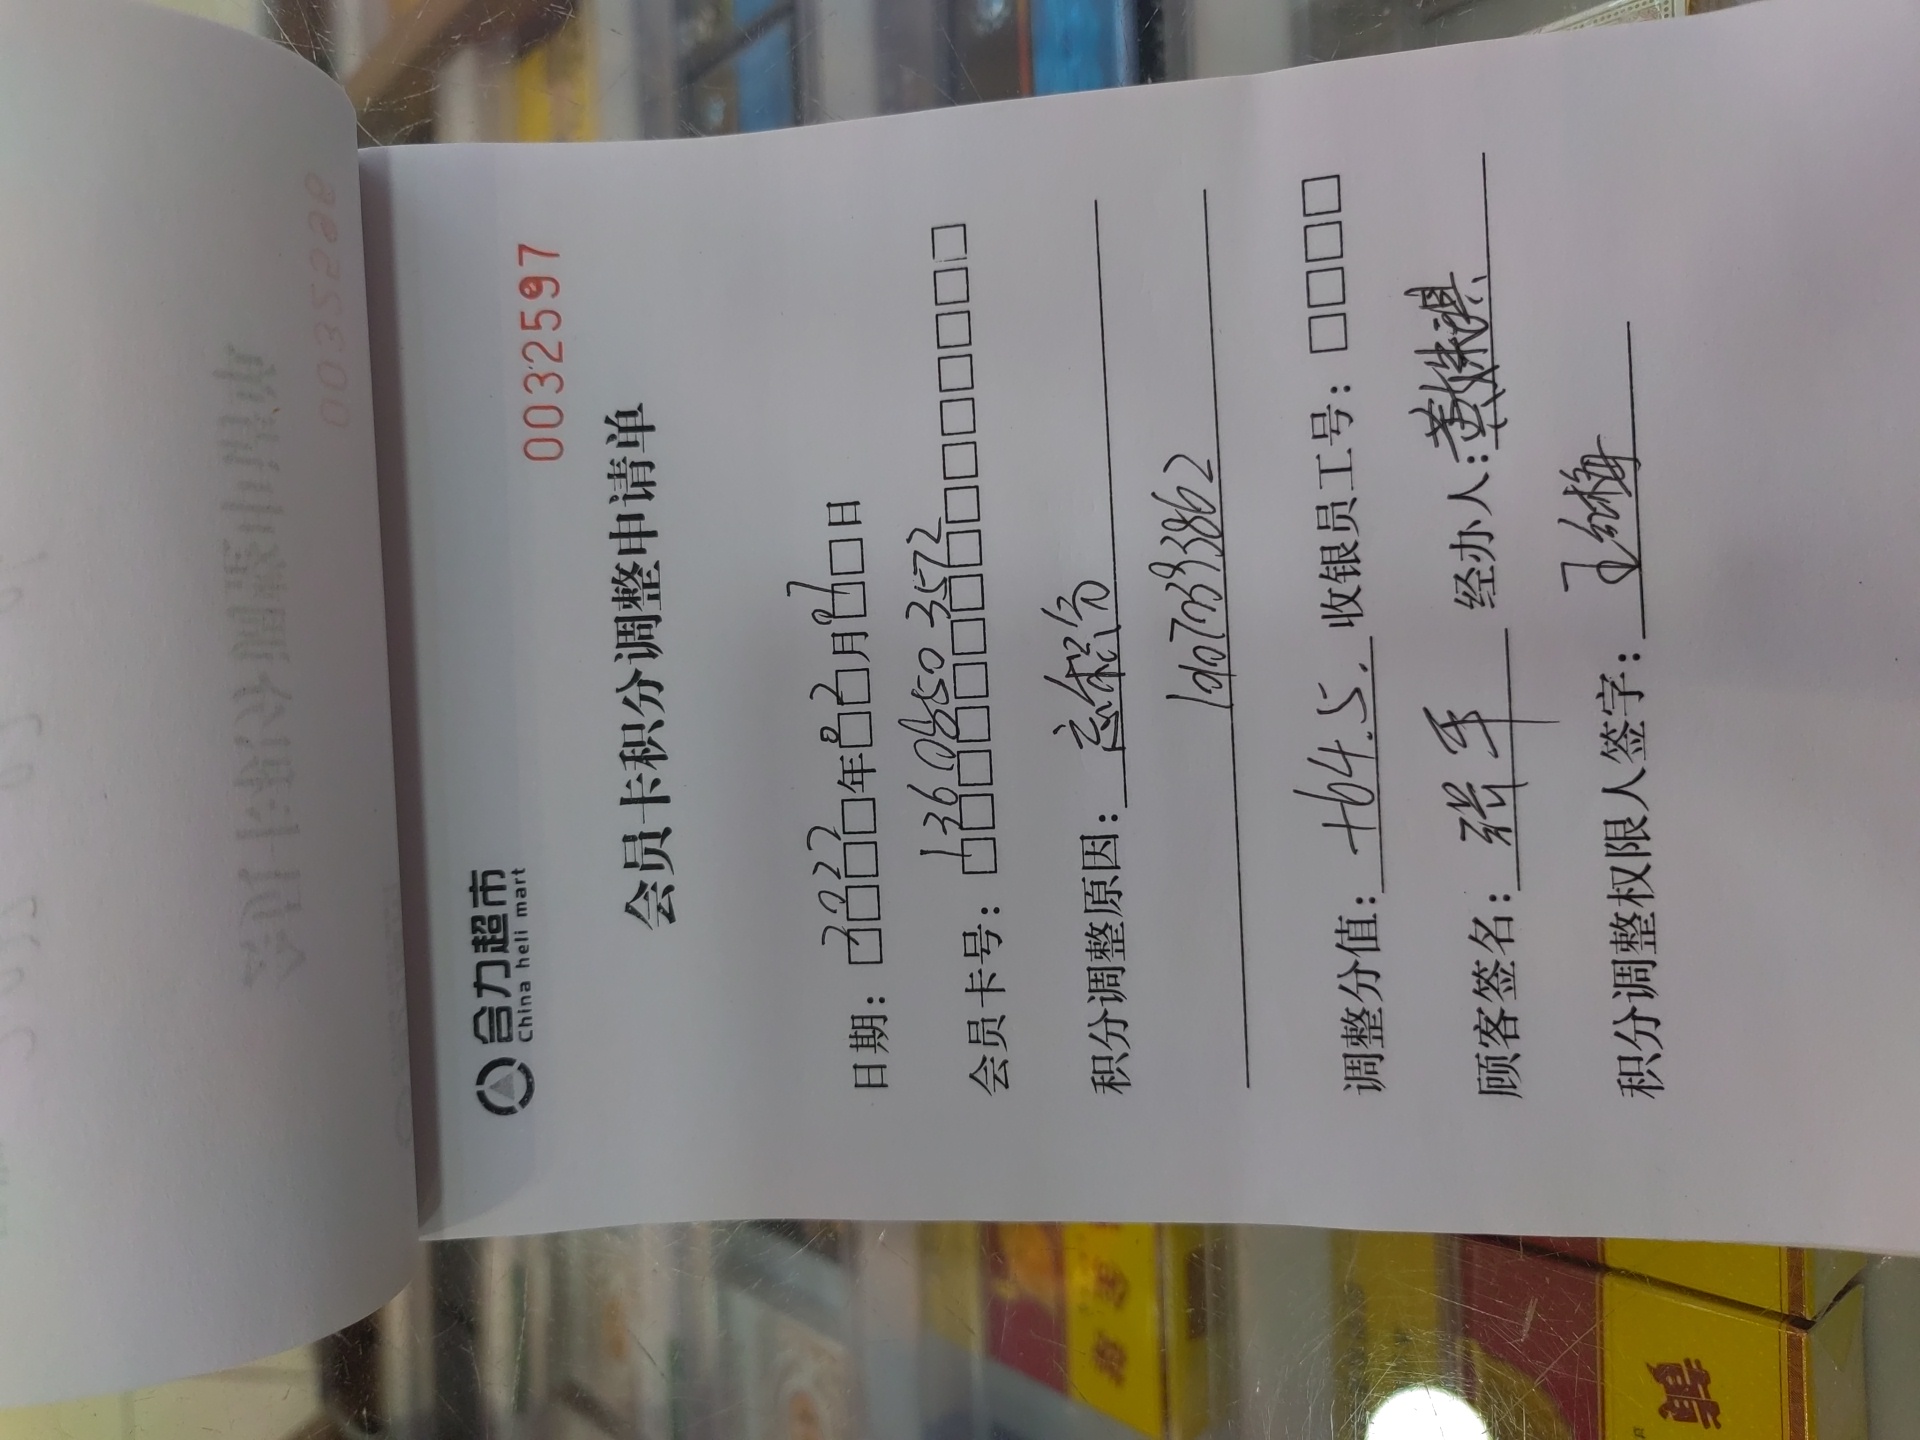 合力超市
China heli mart
0032597
会员卡积分调整申请单
日期：2022年02月07日
会员卡号：13608503572
积分调整原因：忘积分
调整分值：+64.5. 收银员工号：
顾客签名： 经办人：
积分调整权限人签字：
0032596